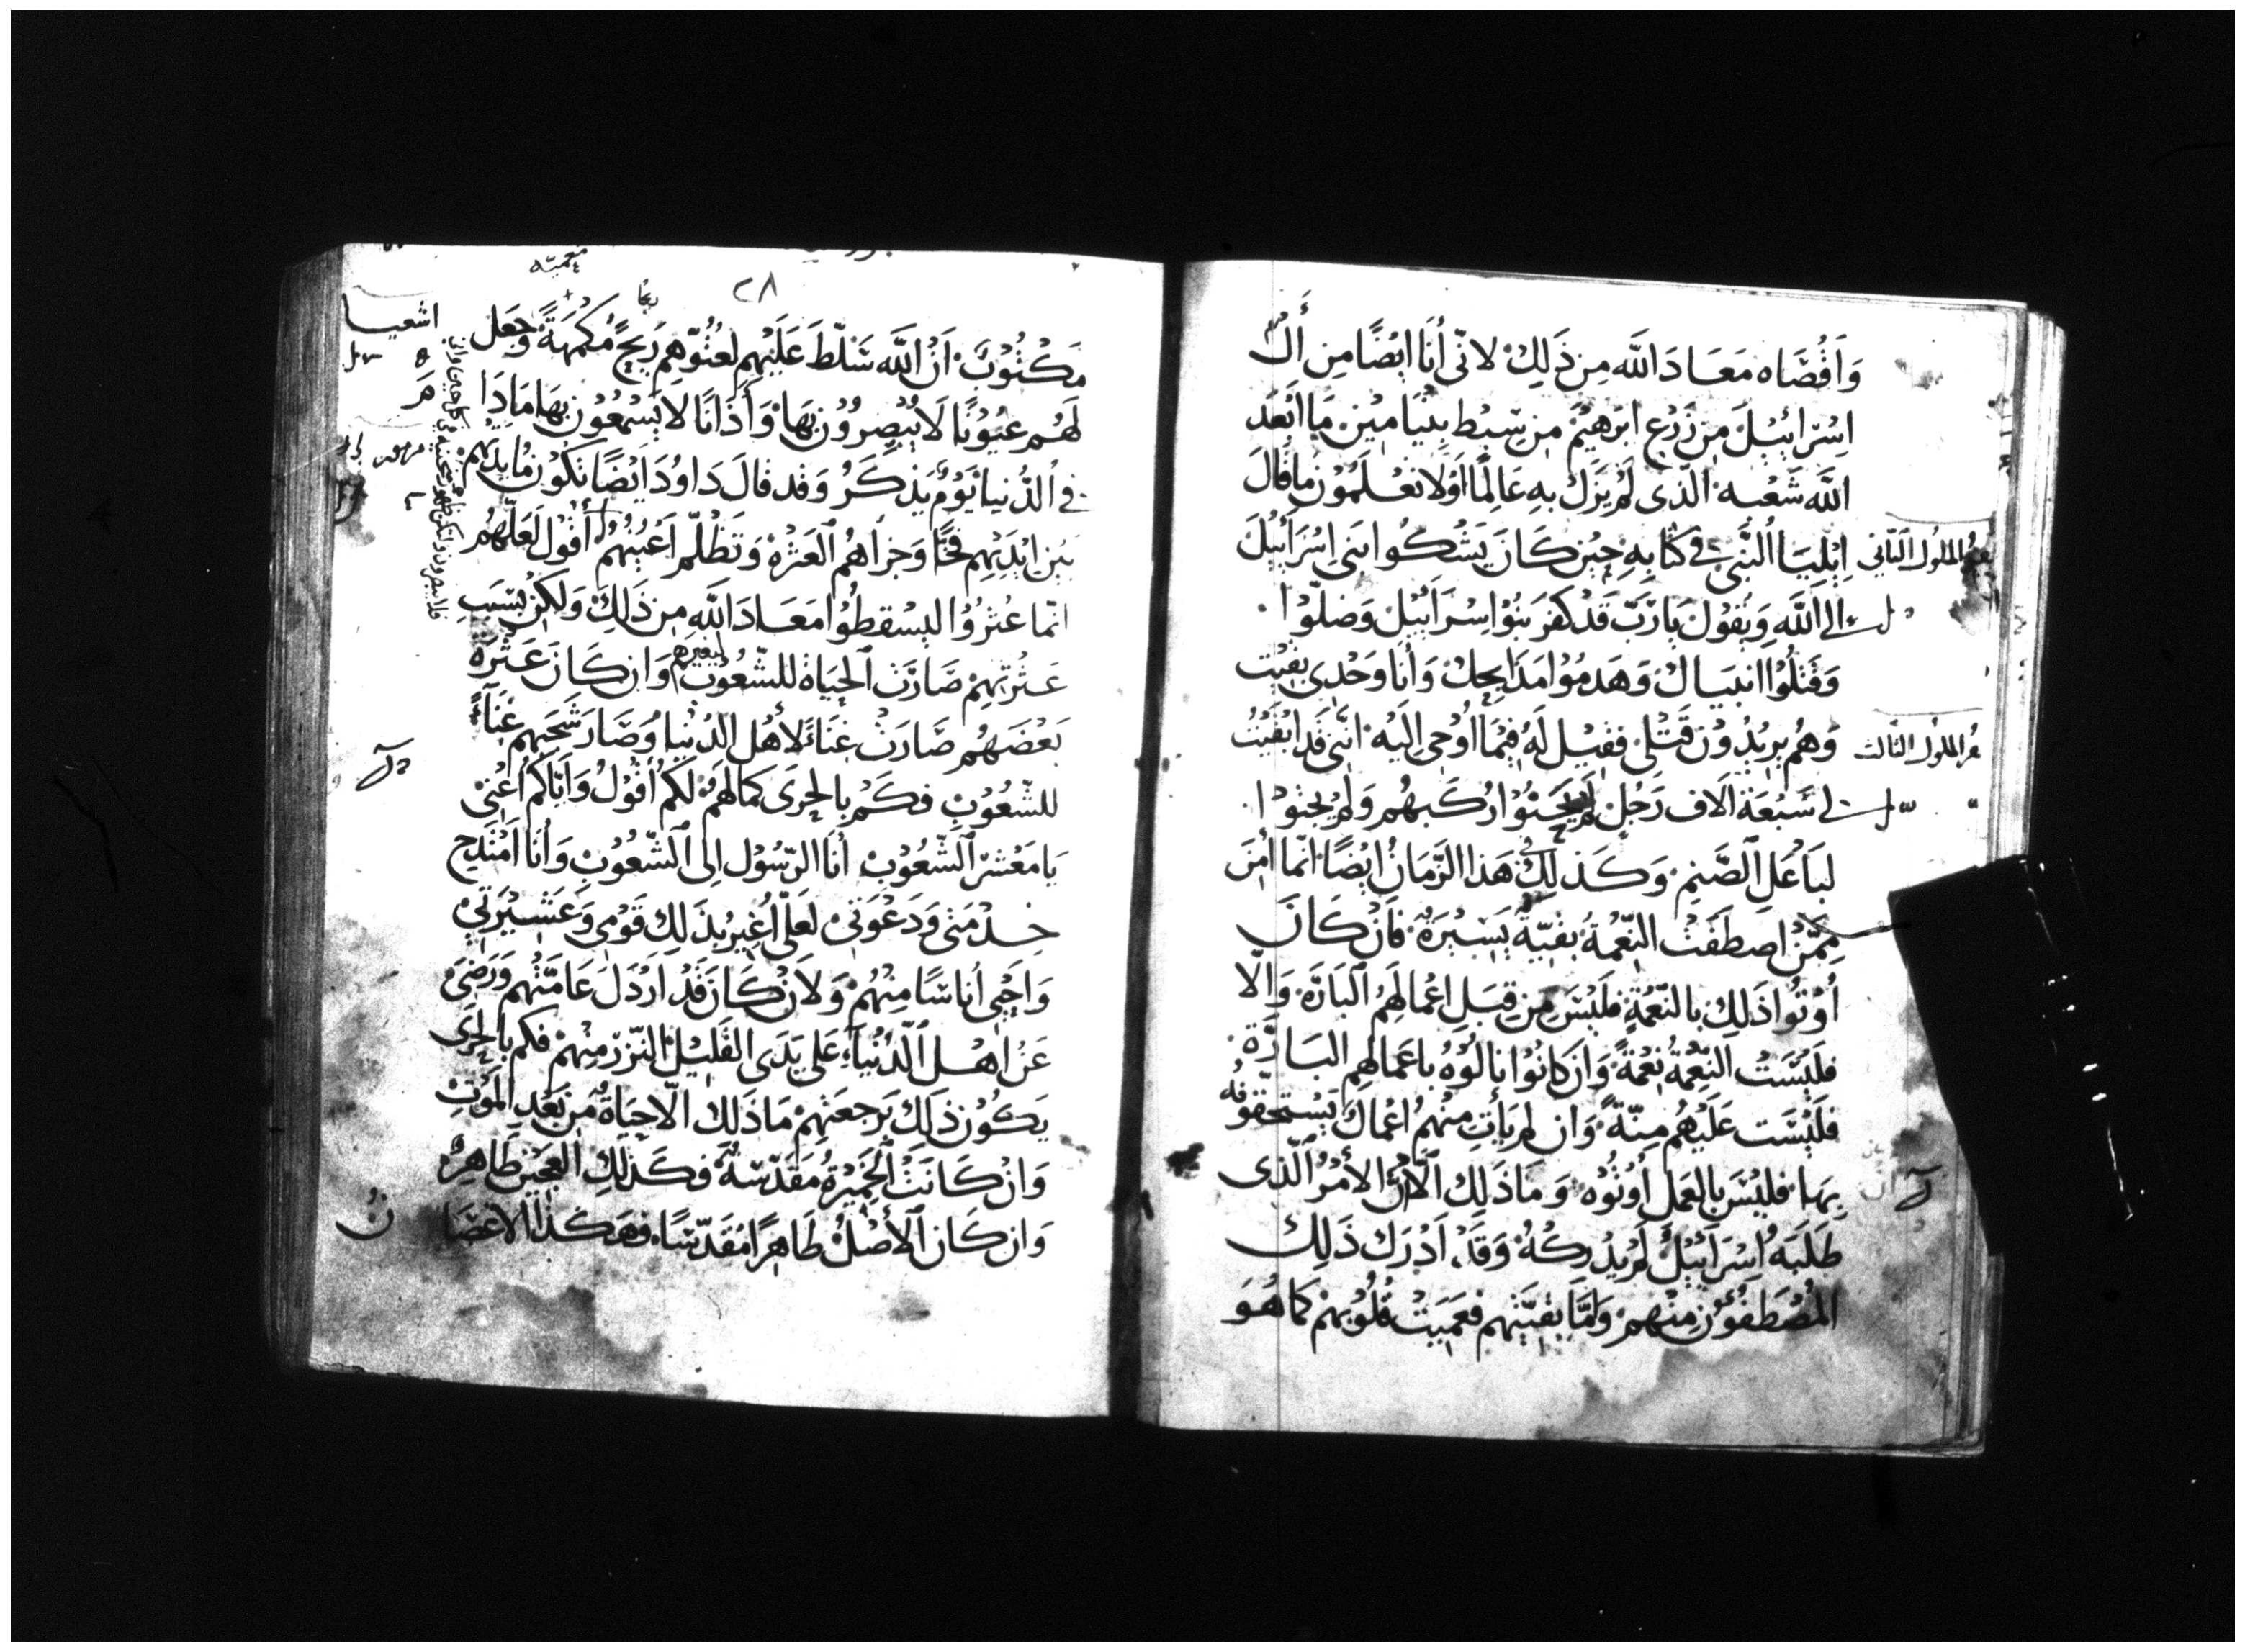 وَاَقْصَاه مَعَادَ اللّه مِن ذَلِكَ لانّى أنَا ايْضًا مِن أَل
اِسْرَائِيْلَ مِن زَرْعِ ابْرَهِيْمَ مِن سِبْط بِنْيَامِيْن مَا ابْعَد
اللّه شَعْبه الّذى لَمْ يَزَل بِهِ عَالِمًا اَوَلا تعْلَمُوْن ما قَالَ
اِيْلِيَا النَّبى فى كتابِهِ حِيْن كَانَ يَشْكُو ابَنى اِسْرَائِيْلَ
سفر الملوك الثانى
الى اللَّهِ وَيَقوْل يَا رَبّ قَدْ كفَر بَنُوْا اِسْرَائِيْل وَضلّوْا
وَقَتلُوْا انبيَاك وَهَدمُوْا مَذَابحِكَ وَأنَا وَحْدى بقِيْت
وَهُم يرِيْدُوْن قَتْلى فقيْل لَهُ فِيْمَا اُوْحِى اِلَيْه اننّى قَد ابْقَيْتُ
سفر الملوك الثالث
لى سَبْعَة الاف رَجُل لَمْ يَحْنُوْا رُكَبهُم وَلَمْ يجثوْا
لبَاعَل الصَّنِم وَكَذلِكَ فى هَذا الزَّمَان ايْضًا انّما أُمن
مِمَّن اصطَفَت النّعْمةُ بقيّةُ يَسِيْرَةُ فَان كَانَ
أوْتُوْا ذَلِكَ بالنّعْمَةِ فلَيْسَ مِن قِبَلِ اعْمالَهِمُ البَارَّة وَالّا
فلَيْسَتْ النّعْمةُ نِعْمَةً وَان كانُوْا نالُوْهُ باعمَالِهِم البَارَّة
فلَيْسَت عَلَيْهُم مِنّةُ وَان لم يَأتِ مِنْهم اعْمَالَ يَسْتحقوْنه
بِهَا فليْسَ بِالعَمل أُوْتُوْه وَمَا ذَلِكَ الّا انّ الأمْرُ الَّذى
طَلَبَهُ اِسْرَائِيْلُ لَم يُدْرِكْهُ وَقَدْ اَدْرَكَ ذَلِكَ
المُصْطَفُوْن مِنْهمْ وَامَّا بَقيَّتهم فعَمِيَتْ قُلُوْبهمْ كما هُوَ
٢٨
مَكْتُوْبُ اَنّ اللَّه سَلّطَ عَلَيْهِم لعُتُوّهِم رِيحً مُكْمِهَةً وَجعَل
اشعيا
لَهُم عيُوْنًا لَا يُبْصِرُوْن بهَا وَأَذَانًا لَا يَسْمَعُوْن بهَا مَا دَا
فى الدُّنيا يَوْمُ يَذكَرُ وَقد قالَ دَاوُدَ ايْضًا تَكُوْن مَائِدَتهم
مزمور
بَيْن ايْدَيْهِم فخًّا وَجزاهُم العَثرْة وَتَظلَم اعْيُنهُم أقوْل لَعَلّهُم
انّما عُثرُوْا ليسْقطُوْا مَعَادَ اللَّه مِن ذَلِكَ وَلكِنْ بِسَبَب
عَثرتهِمْ صَارَت الحَيَاة للشّعُوْب ليغيرهم وَان كَانَ عَثْرَة
بَعْضَهُم صَارَتْ غنَاءً لأهْل الدُنْيا وَصَارَ شَجَبهم غَنَاءً
للشّعُوْب فكَمْ بالحِرَى كمالهم لَكم أقُوْلُ وَايَّاكمُ اعْنى
يَا مَعْشَر الشّعُوْب أنَا الرّسُوْل الى الشّعُوْب وَأنَا اَمْتَدِح
خِدْمَتى وَدَعْوَتى لَعَلّى اُغِيْر بذَلِكَ قَوْمِى وَعَشِيْرَتِى
وَاحْيى أناسًا مِنْهُم وَلاَنْ كَانَ قَدْ ارْذَل عَامّتُهم وَرَضِىَ
عَنُ اهْل الدُّنْيا عَلى يَدَى القَلِيْل النّزرْ مِنْهمْ فكم بالحِرَى
يَكوُن ذلِكَ بَرجعتِهمْ مَا ذَلِك الّا حيَاةُ مِن بَعْدِ المَوْتِ
وَانْ كَانَتْ الخَمِيْرَةُ مُقدّسَةُ فكَذلِكَ العَجِيْن طَاهِرُ
وَان كَان الأصْلُ طَاهِرًا مُقَدّسًا فهَكَذا الاغصَا
نُ